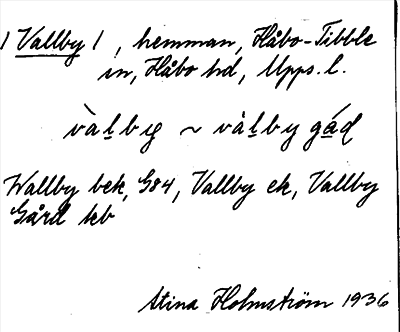 / Vallby / , hemman, Håbo-Tibble
sn, Håbo hd, Upps. l.
vàlby ~ vàlby gád
Wallby bek, G84, Vallby ek, Vallby
Gård kb
Stina Holmström 1936